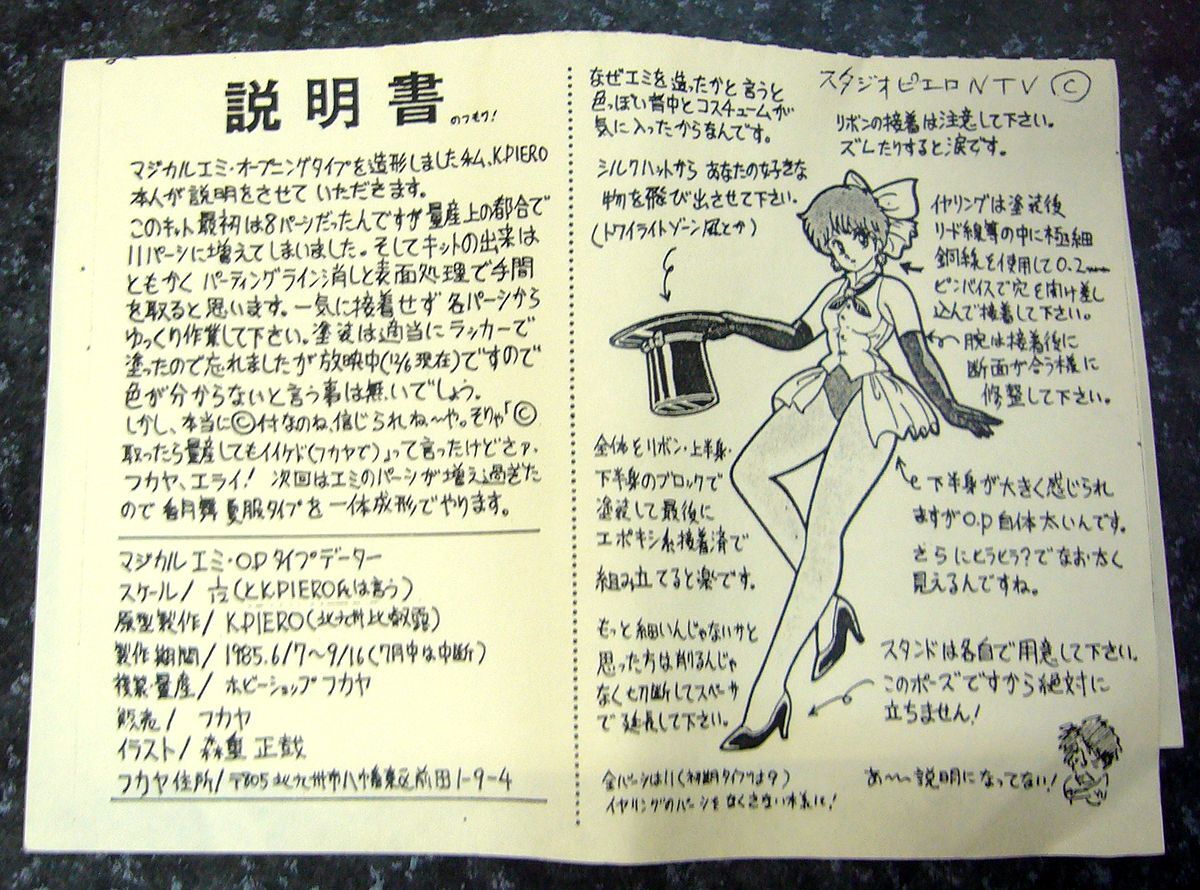 説明書 のつもり!
マジカルエミ・オープニングタイプを造形しました私、K.PIERO
本人が説明をさせていただきます。
このキット最初は8パーシだったんですが量産上の都合で
11パーシに増えてしまいました。そしてキットの出来は
ともかくパーティングライン消しと表面処理で手間
を取ると思います。一気に接着せず各パーシから
ゆっくり作業して下さい。塗装は適当にラッカーで
塗ったので忘れましたが放映中(12/6現在)ですので
色が分からないと言う事は無いでしょう。
しかし、本当に©付なのね、信じられね〜や。そりゃ「©
取ったら量産してもイイケド(フカヤで)」って言ったけどさァ、
フカヤ、エライ! 次回はエミのパーシが増え過ぎた
ので香月舞夏服タイプを一体成形でやります。
マジカルエミ・O.Pタイプデーター
スケール/ 1/12(とK.PIERO氏は言う)
原型製作/ K.PIERO(北九州比叡霞)
製作期間/ 1985.6/7〜9/16(7月中は中断)
複製・量産/ ホビーショップフカヤ
販売/ フカヤ
イラスト/ 森重正哉
フカヤ住所/〒805北九州市八幡東区前田1-9-4
なぜエミを造ったかと言うと
色っぽい背中とコスチュームが
気に入ったからなんです。
シルクハットからあなたの好きな
物を飛び出させて下さい。
(トワイライトゾーン風とか)
スタジオピエロNTV©
リボンの接着は注意して下さい。
ズレたりすると涙です。
イヤリングは塗装後
リード線等の中に極細
銅線を使用して0.2mm
ピンバイスで穴を開け差し
込んで接着して下さい。
腕は接着後に
断面が合う様に
修整して下さい。
全体をリボン・上半身・
下半身のブロックで
塗装して最後に
エポキシ系接着済で
組み立てると楽です。
下半身が大きく感じられ
ますがO.P自体太いんです。
さらにヒラヒラ?でなお太く
見えるんですね。
もっと細いんじゃないかと
思った方は削るんじゃ
なく切断してスペーサ
で延長して下さい。
スタンドは各自で用意して下さい。
このポーズですから絶対に
立ちません!
全パーシは11(初期タイプは9)
イヤリングのパーシをなくさない様に!
あ〜〜説明になってない!